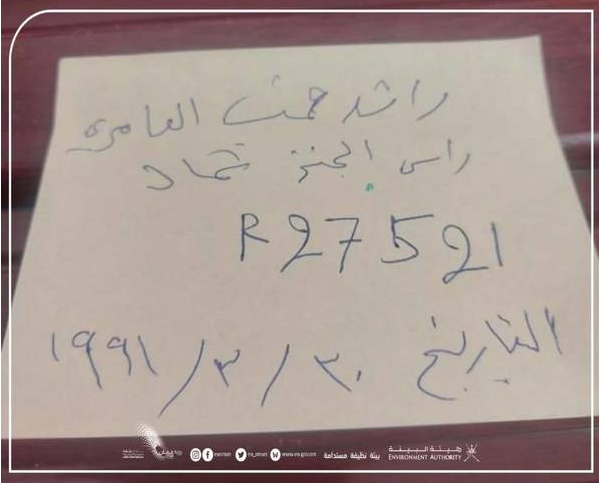 راشد حمد العامري
راس الجنز
R27521
التاريخ ٣٠/٣/١٩٩١
هيئة البيئة
ENVIRONMENT AUTHORITY
بيئة نظيفة مستدامة
www.ea.gov.om
ea_oman
eaoman